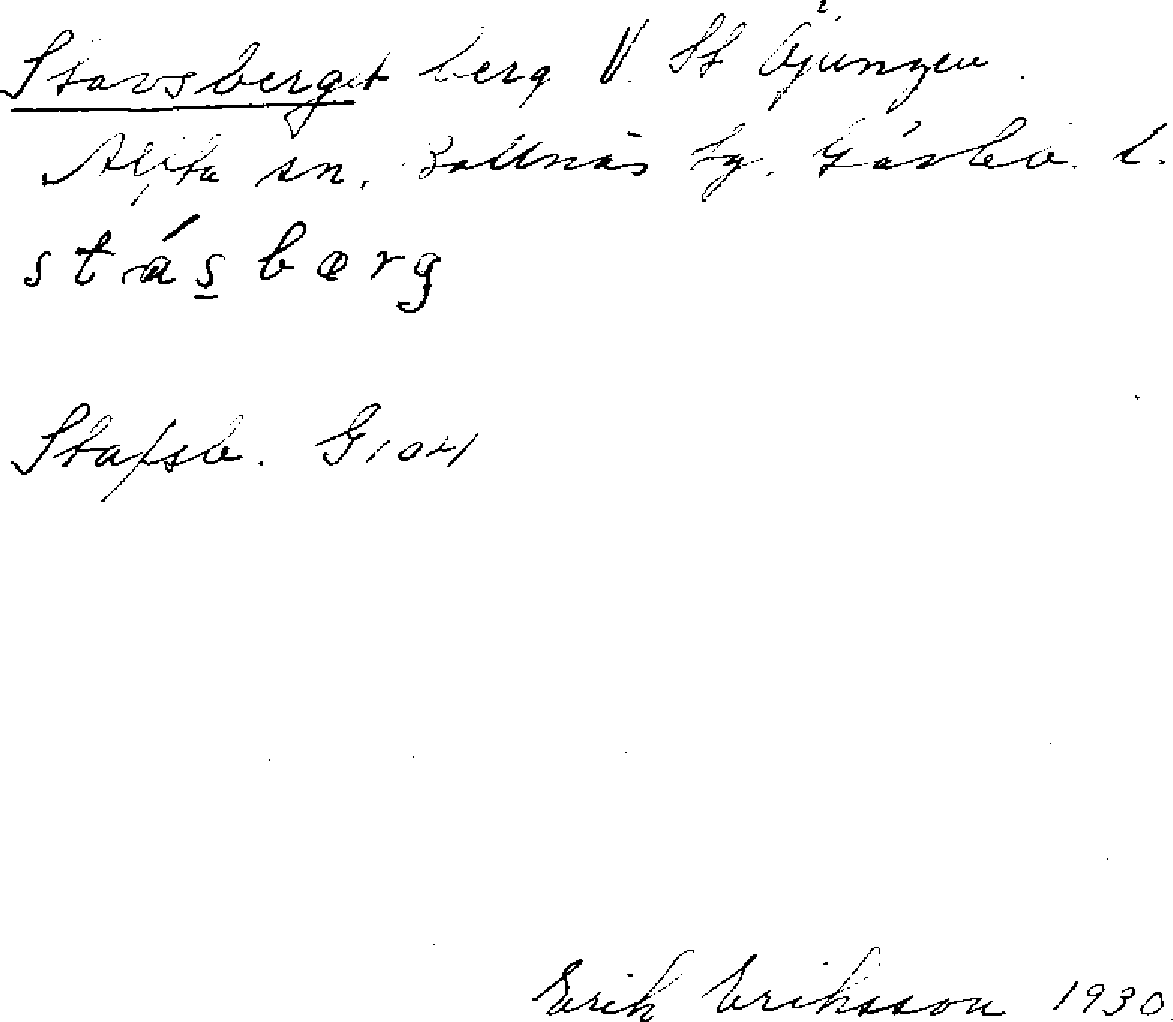 Stavsberget berg V. St Öjungen.
Alfta sn. Bollnäs tg. Gävleb. l.
stásbærg
Stafsb. G104
Erik Eriksson 1930.